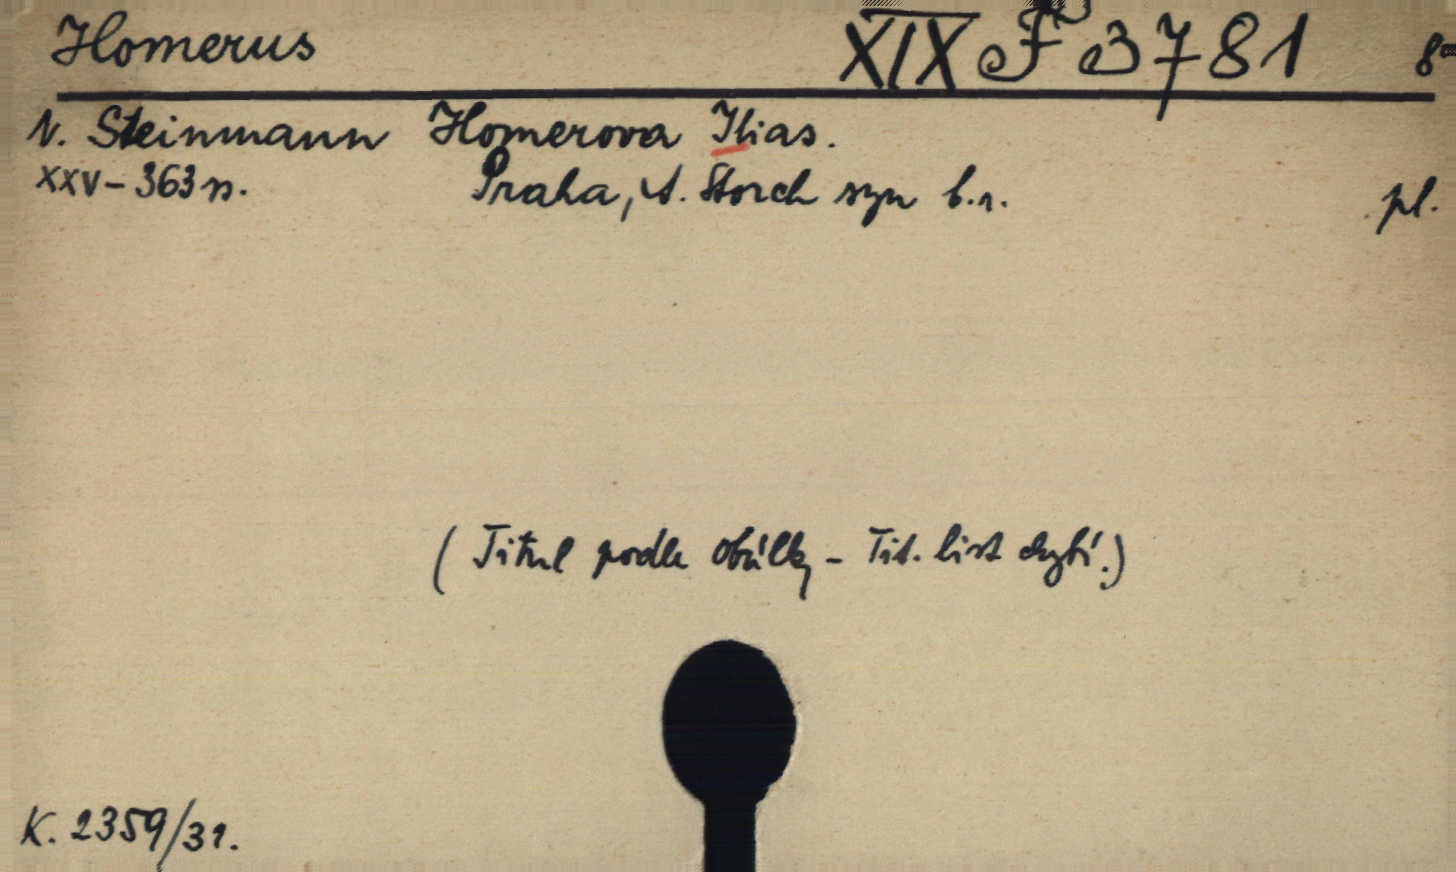 Homerus XIX F 3781 8°
V. Steinmann Homerova Ilias.
XXV-363 s. Praha, A. Storch syn b.r. pl.
(Titul podle obálky - Tit. list chybí.)
K. 2359/31.